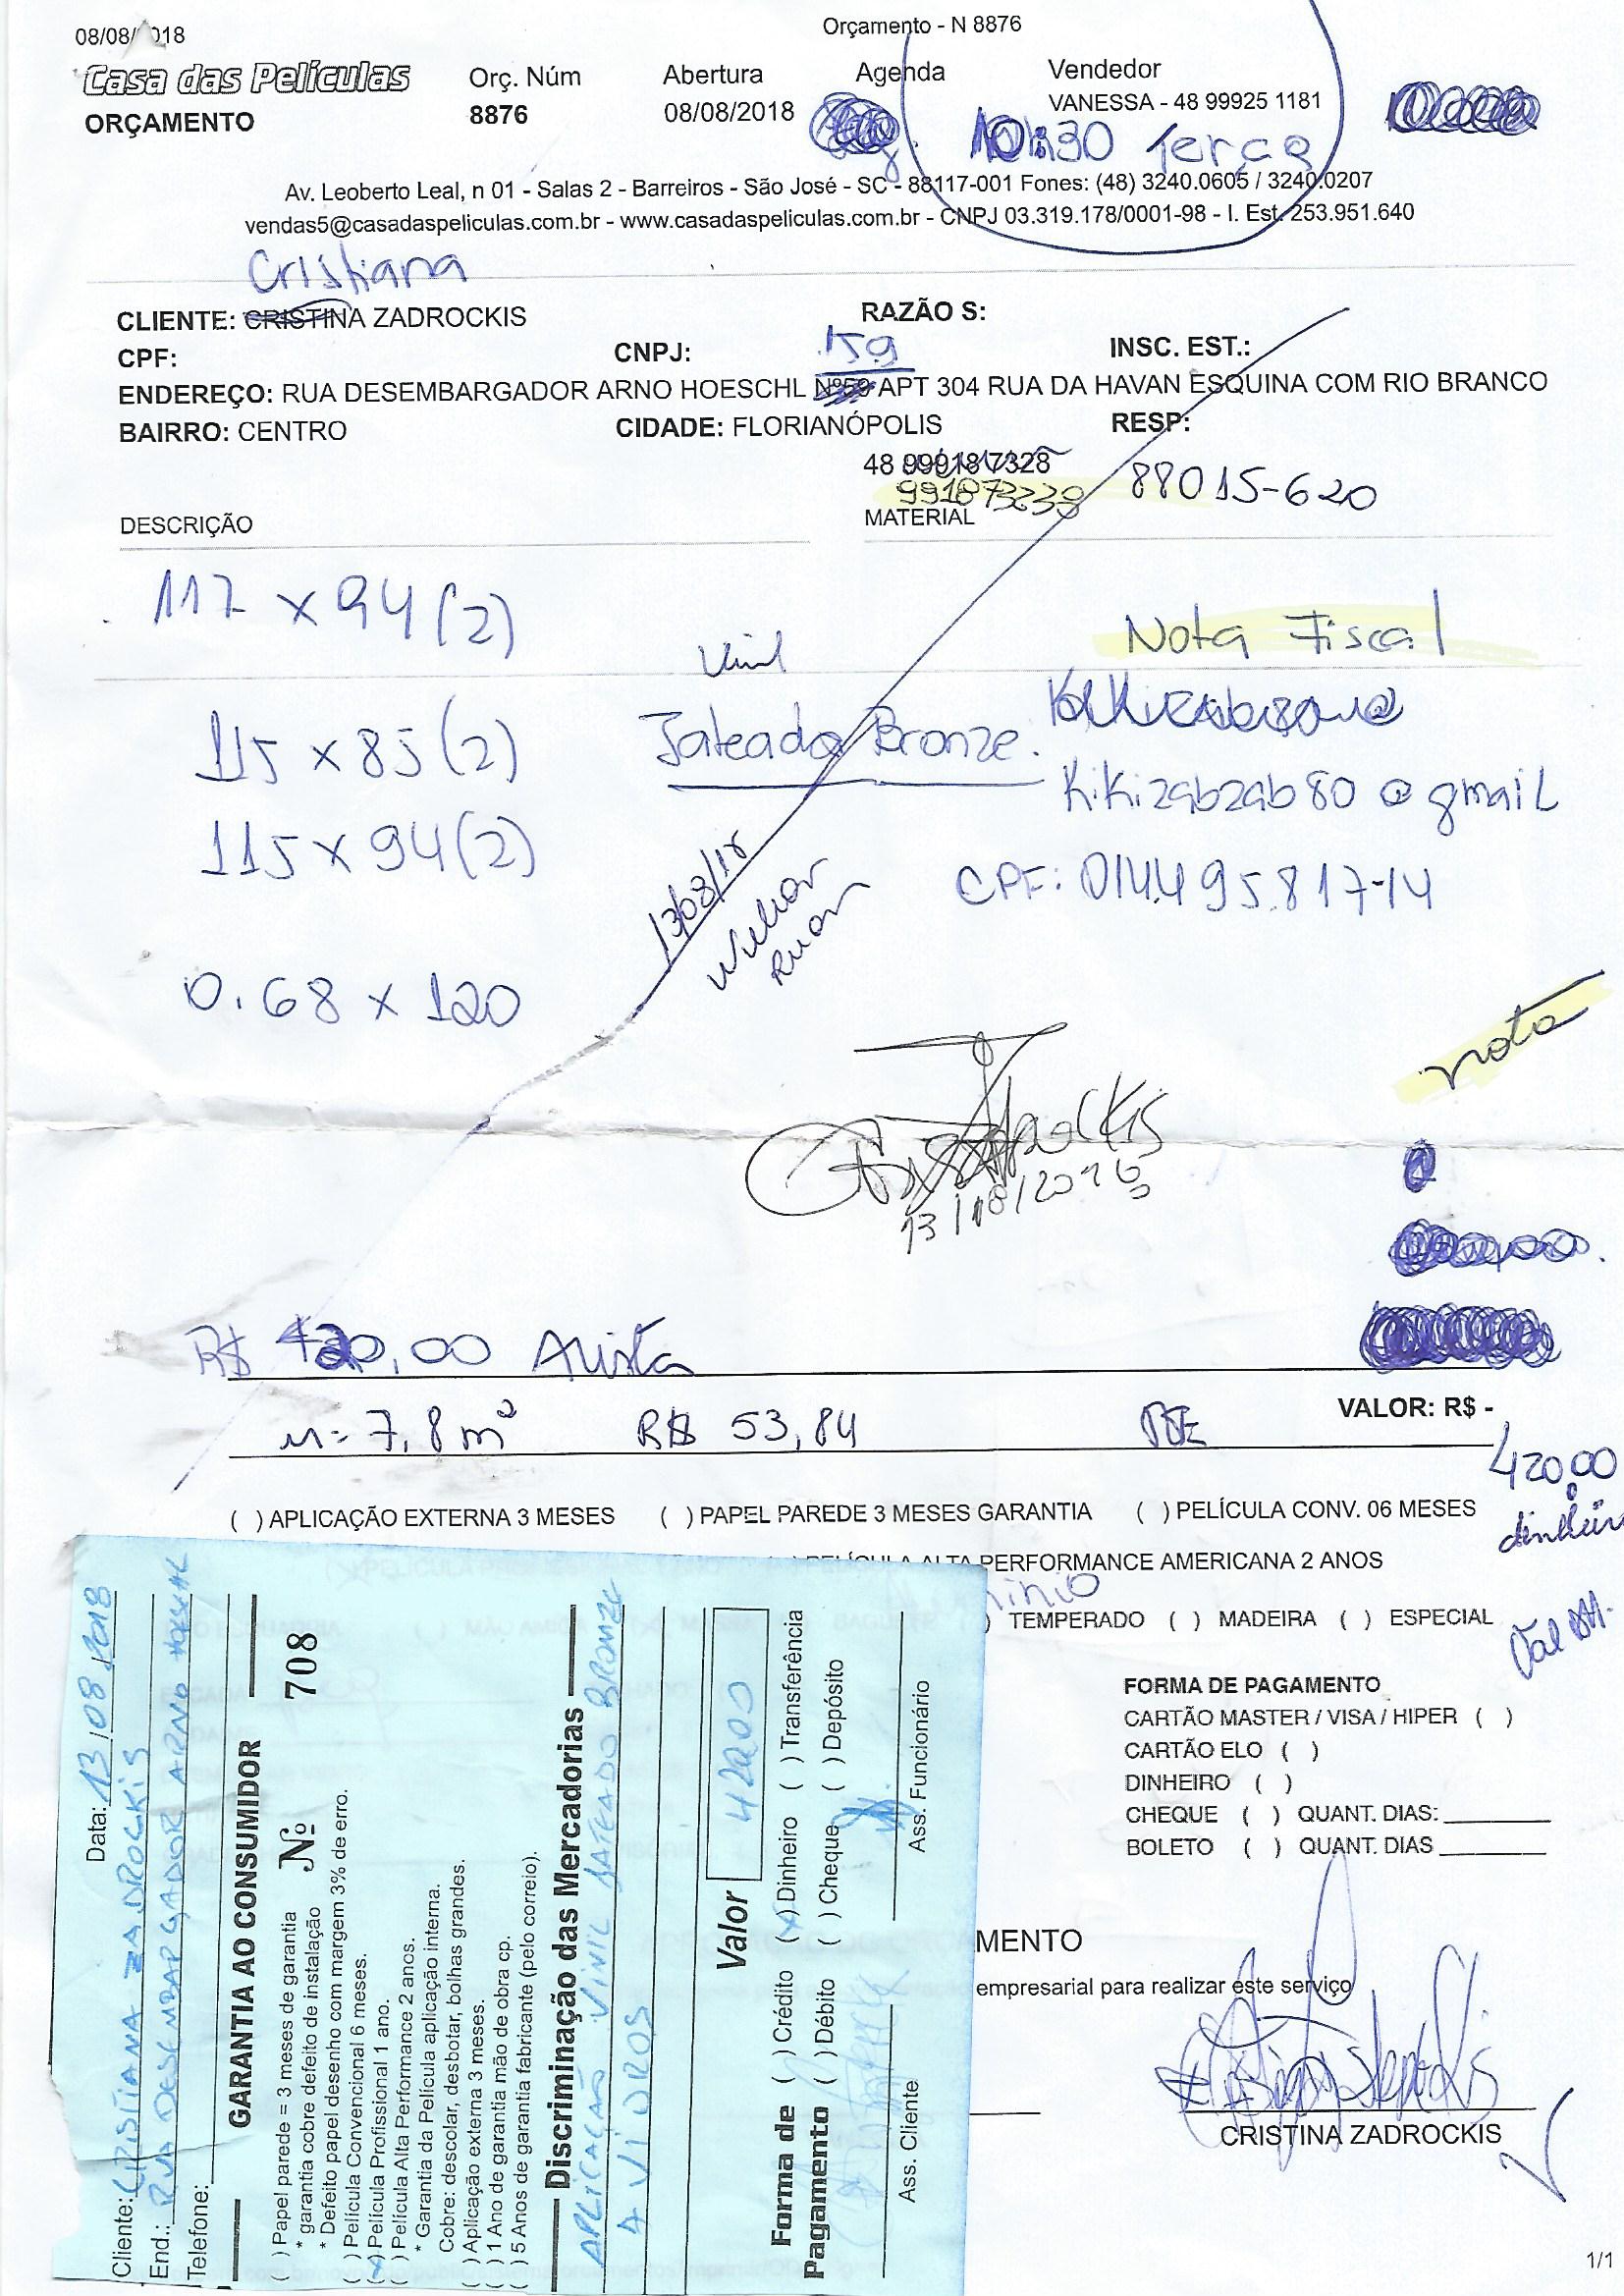 08/08/2018
Orçamento - N 8876
Casa das Películas
ORÇAMENTO
Orç. Núm
8876
Abertura
08/08/2018
Agenda
Vendedor
VANESSA - 48 99925 1181
10:30 Terça
Av. Leoberto Leal, n 01 - Salas 2 - Barreiros - São José - SC - 88117-001 Fones: (48) 3240.0605 / 3240.0207
vendas5@casadaspeliculas.com.br - www.casadaspeliculas.com.br - CNPJ 03.319.178/0001-98 - I. Est. 253.951.640
Cristiana
CLIENTE: CRISTINA ZADROCKIS
RAZÃO S:
CPF:
CNPJ:
159
INSC. EST.:
ENDEREÇO: RUA DESEMBARGADOR ARNO HOESCHL Nº59 APT 304 RUA DA HAVAN ESQUINA COM RIO BRANCO
BAIRRO: CENTRO
CIDADE: FLORIANÓPOLIS
RESP:
48 999187328
991873238
88015-620
DESCRIÇÃO
MATERIAL
117 x 94 (2)
Nota Fiscal
Vinil
115 x 85 (2)
Jateado Bronze.
Kikizabzab80@gmail
115 x 94 (2)
13/08/18
CPF: 014.495.817-14
0.68 x 120
nota
13/08/2018
R$ 420,00 Avista
VALOR: R$ -
m= 7,8 m²
R$ 53,84
420,00
dinheiro
( ) APLICAÇÃO EXTERNA 3 MESES
( ) PAPEL PAREDE 3 MESES GARANTIA
( ) PELÍCULA CONV. 06 MESES
PELÍCULA ALTA PERFORMANCE AMERICANA 2 ANOS
) TEMPERADO ( ) MADEIRA ( ) ESPECIAL
FORMA DE PAGAMENTO
CARTÃO MASTER / VISA / HIPER ( )
CARTÃO ELO ( )
DINHEIRO ( )
CHEQUE ( ) QUANT. DIAS:
BOLETO ( ) QUANT. DIAS
MENTO
empresarial para realizar este serviço
CRISTINA ZADROCKIS
1/1
Data: 13/08/2018
Cliente: CRISTIANA ZADROCKIS
End.: RUA DESEMBARGADOR ARNO
Telefone:
GARANTIA AO CONSUMIDOR
( ) Papel parede = 3 meses de garantia
* garantia cobre defeito de instalação
Nº 708
* Defeito papel desenho com margem 3% de erro.
( ) Película Convencional 6 meses.
(x) Película Profissional 1 ano.
( ) Película Alta Performance 2 anos.
* Garantia da Película aplicação interna.
Cobre: descolar, desbotar, bolhas grandes.
( ) Aplicação externa 3 meses.
( ) 1 Ano de garantia mão de obra cp.
( ) 5 Anos de garantia fabricante (pelo correio).
Discriminação das Mercadorias
APLICAÇÃO VINIL JATEADO BRONZE
4 VIDROS
Valor 42000
Forma de Pagamento
( ) Crédito (x) Dinheiro ( ) Transferência
( ) Débito ( ) Cheque ( ) Depósito
Ass. Cliente
Ass. Funcionário